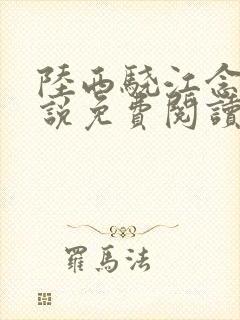 陸西驍江念
說免費閱讀
羅馬法